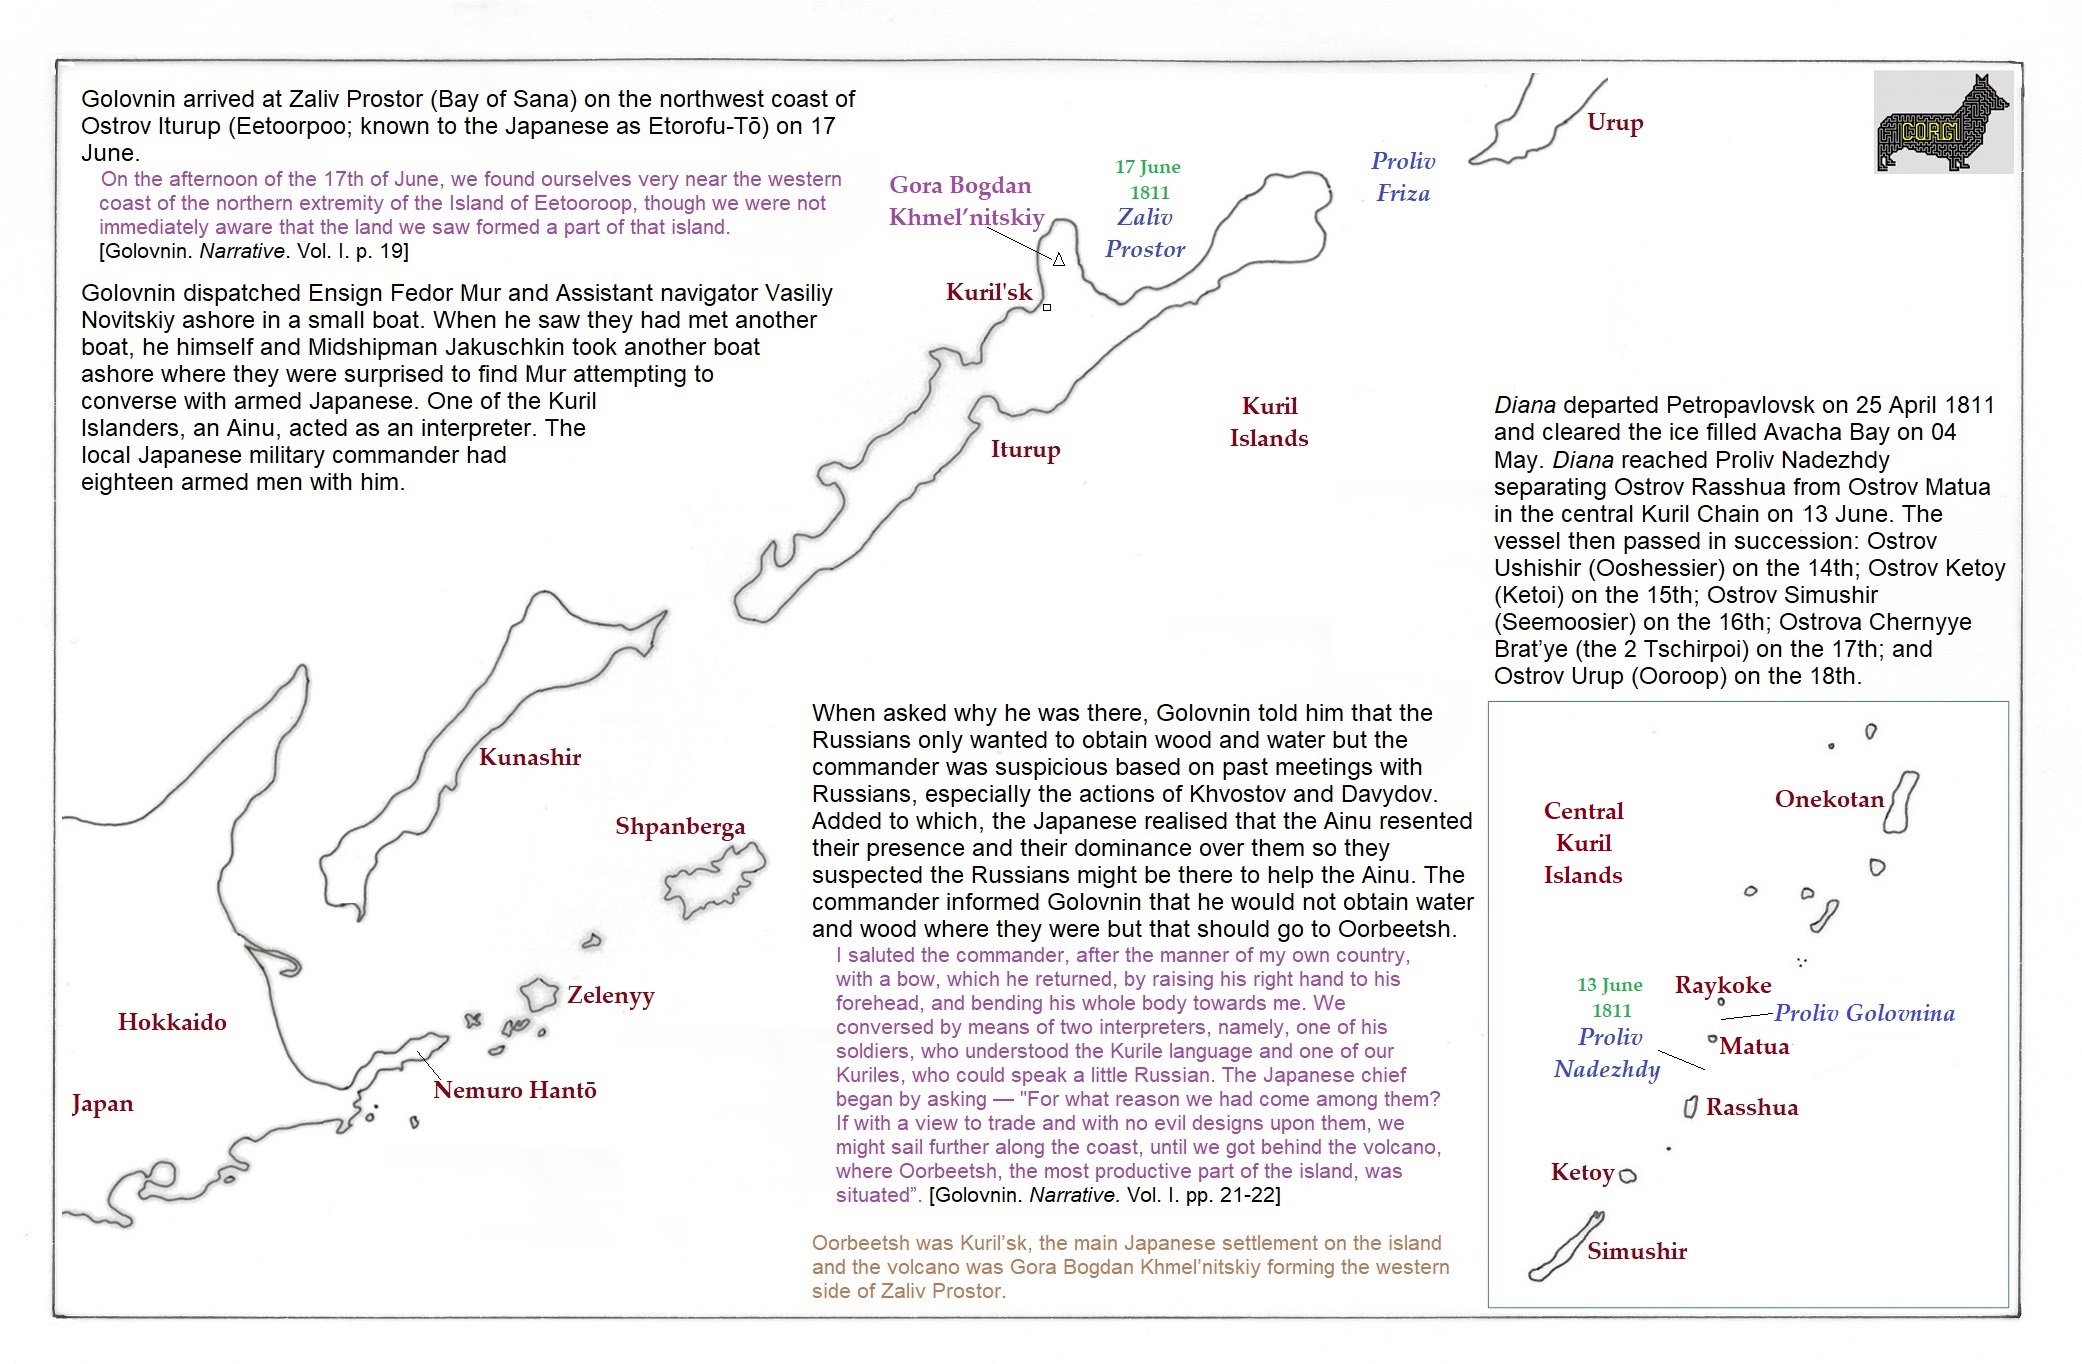 Golovnin arrived at Zaliv Prostor (Bay of Sana) on the northwest coast of
Ostrov Iturup (Eetoorpoo; known to the Japanese as Etorofu-Tō) on 17
June.
On the afternoon of the 17th of June, we found ourselves very near the western
coast of the northern extremity of the Island of Eetooroop, though we were not
immediately aware that the land we saw formed a part of that island.
[Golovnin. Narrative. Vol. I. p. 19]
Golovnin dispatched Ensign Fedor Mur and Assistant navigator Vasiliy
Novitskiy ashore in a small boat. When he saw they had met another
boat, he himself and Midshipman Jakuschkin took another boat
ashore where they were surprised to find Mur attempting to
converse with armed Japanese. One of the Kuril
Islanders, an Ainu, acted as an interpreter. The
local Japanese military commander had
eighteen armed men with him.
Gora Bogdan
Khmel’nitskiy
17 June
1811
Zaliv
Prostor
Proliv
Friza
Urup
CORGI
Kuril'sk
Kuril
Islands
Iturup
Diana departed Petropavlovsk on 25 April 1811
and cleared the ice filled Avacha Bay on 04
May. Diana reached Proliv Nadezhdy
separating Ostrov Rasshua from Ostrov Matua
in the central Kuril Chain on 13 June. The
vessel then passed in succession: Ostrov
Ushishir (Ooshessier) on the 14th; Ostrov Ketoy
(Ketoi) on the 15th; Ostrov Simushir
(Seemoosier) on the 16th; Ostrova Chernyye
Brat’ye (the 2 Tschirpoi) on the 17th; and
Ostrov Urup (Ooroop) on the 18th.
Kunashir
Shpanberga
Zelenyy
Hokkaido
Nemuro Hantō
Japan
When asked why he was there, Golovnin told him that the
Russians only wanted to obtain wood and water but the
commander was suspicious based on past meetings with
Russians, especially the actions of Khvostov and Davydov.
Added to which, the Japanese realised that the Ainu resented
their presence and their dominance over them so they
suspected the Russians might be there to help the Ainu. The
commander informed Golovnin that he would not obtain water
and wood where they were but that should go to Oorbeetsh.
I saluted the commander, after the manner of my own country,
with a bow, which he returned, by raising his right hand to his
forehead, and bending his whole body towards me. We
conversed by means of two interpreters, namely, one of his
soldiers, who understood the Kurile language and one of our
Kuriles, who could speak a little Russian. The Japanese chief
began by asking — "For what reason we had come among them?
If with a view to trade and with no evil designs upon them, we
might sail further along the coast, until we got behind the volcano,
where Oorbeetsh, the most productive part of the island, was
situated”. [Golovnin. Narrative. Vol. I. pp. 21-22]
Oorbeetsh was Kuril’sk, the main Japanese settlement on the island
and the volcano was Gora Bogdan Khmel’nitskiy forming the western
side of Zaliv Prostor.
Central
Kuril
Islands
Onekotan
Raykoke
13 June
1811
Proliv
Nadezhdy
Proliv Golovnina
Matua
Rasshua
Ketoy
Simushir